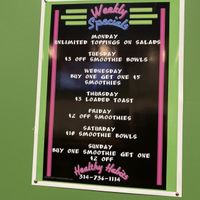 Weekly
Specials
MONDAY
UNLIMITED TOPPINGS ON SALADS
TUESDAY
$3 OFF SMOOTHIE BOWLS
WEDNESDAY
BUY ONE GET ONE $1
SMOOTHIES
THURSDAY
$3 LOADED TOAST
FRIDAY
$2 OFF SMOOTHIES
SATURDAY
$10 SMOOTHIE BOWLS
SUNDAY
BUY ONE SMOOTHIE GET ONE
$2 OFF
Healthy Habits
314-736-1114